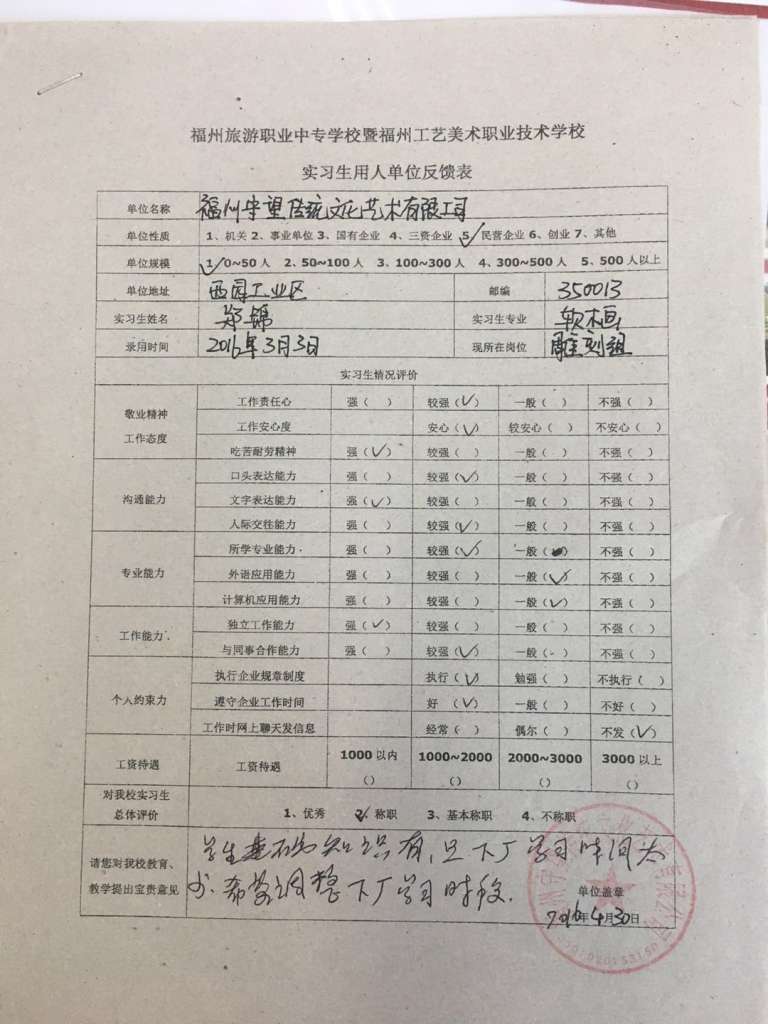 福州旅游职业中专学校暨福州工艺美术职业技术学校
实习生用人单位反馈表
单位名称 福州守望传统文化艺术有限公司
单位性质 1、机关 2、事业单位 3、国有企业 4、三资企业 5√民营企业 6、创业 7、其他
单位规模 1√0~50人 2、50~100人 3、100~300人 4、300~500人 5、500人以上
单位地址 西园工业区 邮编 350013
实习生姓名 郑锦 实习生专业 软木画
录用时间 2016年3月3日 现所在岗位 雕刻组
实习生情况评价
敬业精神 工作态度
工作责任心 强( ) 较强(√) 一般( ) 不强( )
工作安心度 安心(√) 较安心( ) 不安心( )
吃苦耐劳精神 强(√) 较强( ) 一般( ) 不强( )
沟通能力
口头表达能力 强( ) 较强(√) 一般( ) 不强( )
文字表达能力 强(√) 较强( ) 一般( ) 不强( )
人际交往能力 强( ) 较强(√) 一般( ) 不强( )
专业能力
所学专业能力 强( ) 较强(√) 一般( ) 不强( )
外语应用能力 强( ) 较强( ) 一般(√) 不强( )
计算机应用能力 强( ) 较强( ) 一般(√) 不强( )
工作能力
独立工作能力 强(√) 较强( ) 一般( ) 不强( )
与同事合作能力 强( ) 较强(√) 一般( ) 不强( )
个人约束力
执行企业规章制度 执行(√) 勉强( ) 不执行( )
遵守企业工作时间 好 (√) 一般( ) 不好( )
工作时网上聊天发信息 经常( ) 偶尔( ) 不发(√)
工资待遇 工资待遇 1000以内 () 1000~2000 () 2000~3000 () 3000以上 ()
对我校实习生
总体评价
1、优秀 2√称职 3、基本称职 4、不称职
请您对我校教育、
教学提出宝贵意见
学生基础知识有,且下厂学习时间太
少.希望调整下厂学习时段.
单位盖章
2016年4月30日